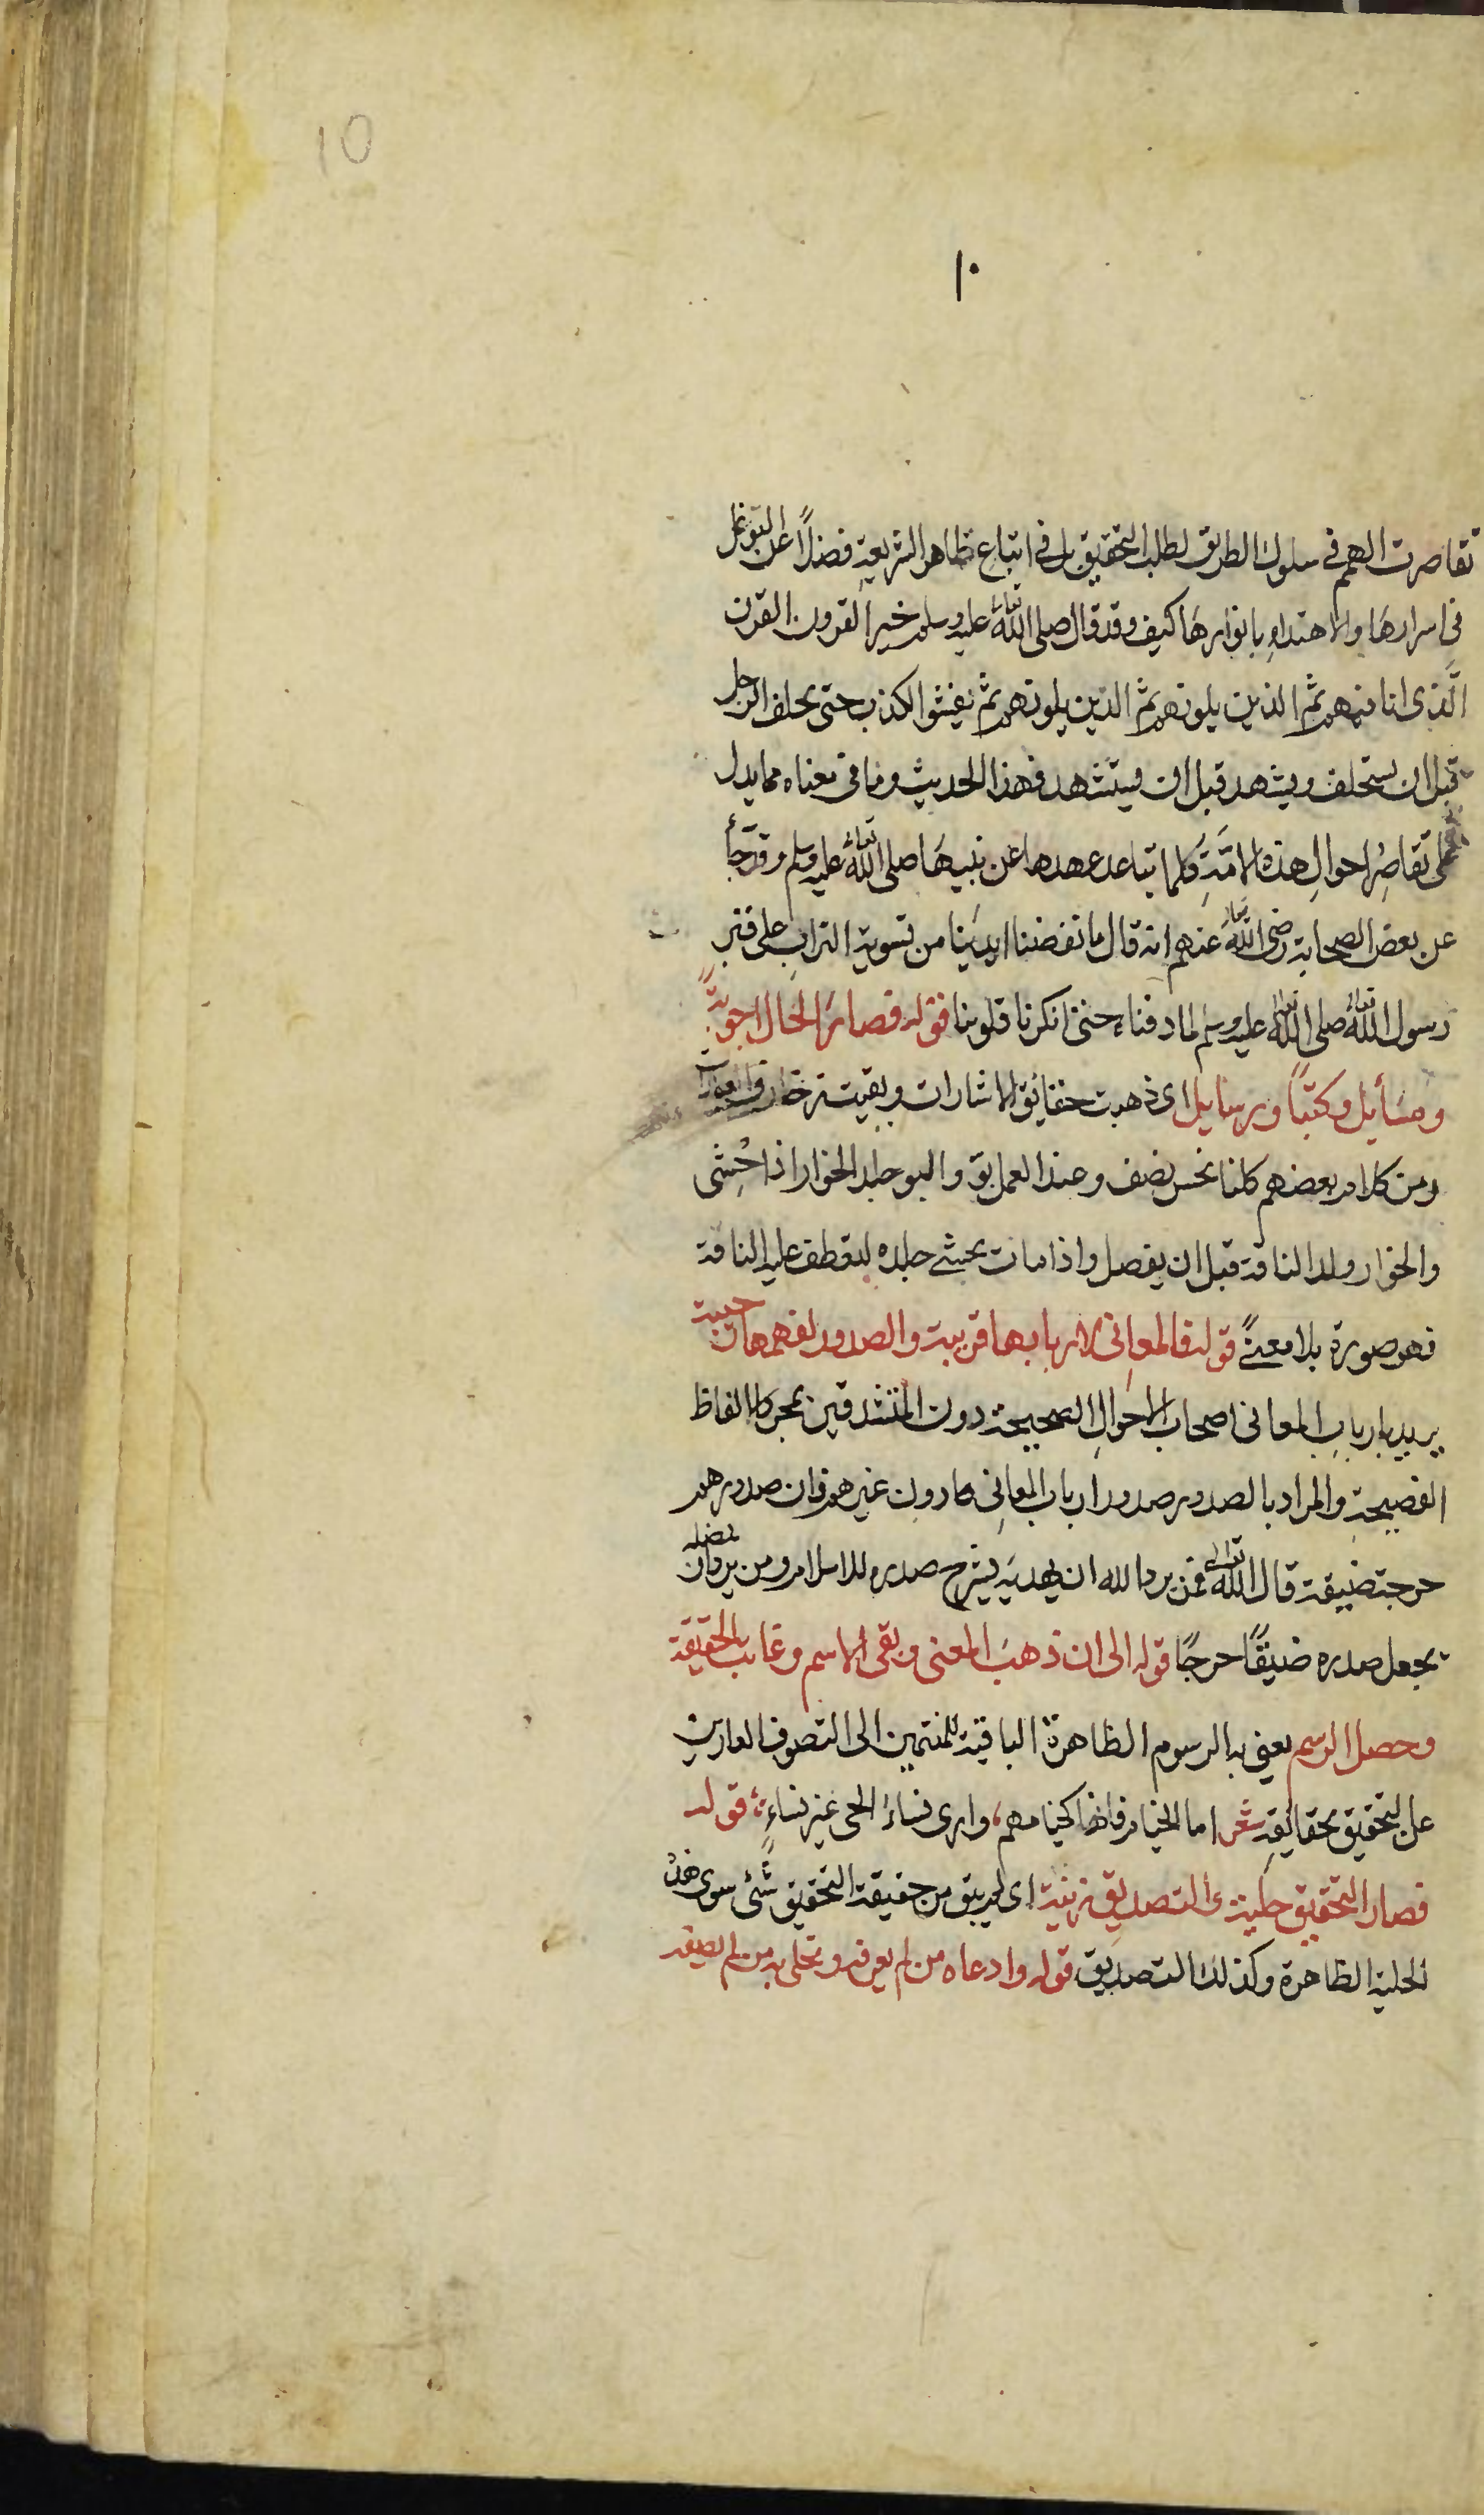 10
١٠
تقاصرت الهمم في سلوك الطريق لطلب التحقيق بل في اتباع ظاهر الشريعةِ فضلاً عن التوغل
في اسرارهَا والاهتداءِ بانوارهَا كيف وقد قال صلى اللّٰه تعالى عليه وسلم خير القرون القرن
الَّذى انا فيهم ثم الذين يلونهم ثم الذين يلونهم ثم يفشوا الكذب حتى يحلف الرجل
قبل ان يستحلف ويشهد قبل ان يستشهد فهذا الحديث وما في معناه مما يدل
على تقاصِر احوالِ هذه الامّةِ كلما تباعد عهدها عن نبيهَا صلى اللّٰه تعالى عليه وسلم وقد جآء
عن بعض الصحابة رضى اللّٰه تعالى عنهم انه قال ما نفضنا ايديَنا من تسوية الترابِ على قبر
رسول اللّٰه تعالى صلى اللّٰه تعالى عليه وسلم لما دفناه حتى انكرنا قلوبنا قوله فصارَ الحال اجوبةً
ومسَأيل وكتبًا ورسايل اى ذهبت حقائق الاشارات وبقيت زخارف العبارات
ومن كلام بعضهم كلنا نحسن نصف وعند العمل بوّ والبو جلد الحوار اذا حُشى
والحوار ولد الناقة قبل ان يفصل واذا مات يحشى جلده لتعطف عليه الناقة
فهو صورة بلا معنىً قوله فالمعانى لاربابها قريبة والصدور لفهمها رحيبة
يريد بارباب المعانى اصحاب الاحوالِ الصحيحة دون المتشدقين بمجرد الالفاظ
الفصيحةِ والمراد بالصدور صدور ارباب المعانِى دون غيرهم فان صدورهم
حرجة ضيقة قال اللّٰه تعالى فمن يرد الله ان يهديَه يشرح صدره للاسلام ومن يرد ان يضله
يجعل صدره ضيّقًا حرجًا قوله الى ان ذهبَ المعنى وبقى الاسم وغابت الحقيقة
وحصل الرسم يعنى به الرسوم الظاهرة الباقية للمنتمين الى التصوف العارين
عن التحقيق بحقائقهِ شعر اما الخيام فانها كخيامهم، وارى نساءَ الحى غير نساءِ، قوله
فصار التحقيق حلية والتصديق زينة اى لم يبق من حقيقة التحقيق شئٌ سوى هذه
الحلية الظاهرة وكذلك التصديق قوله وادعاه من لم يعرفه وتحلى به من لم يصفه